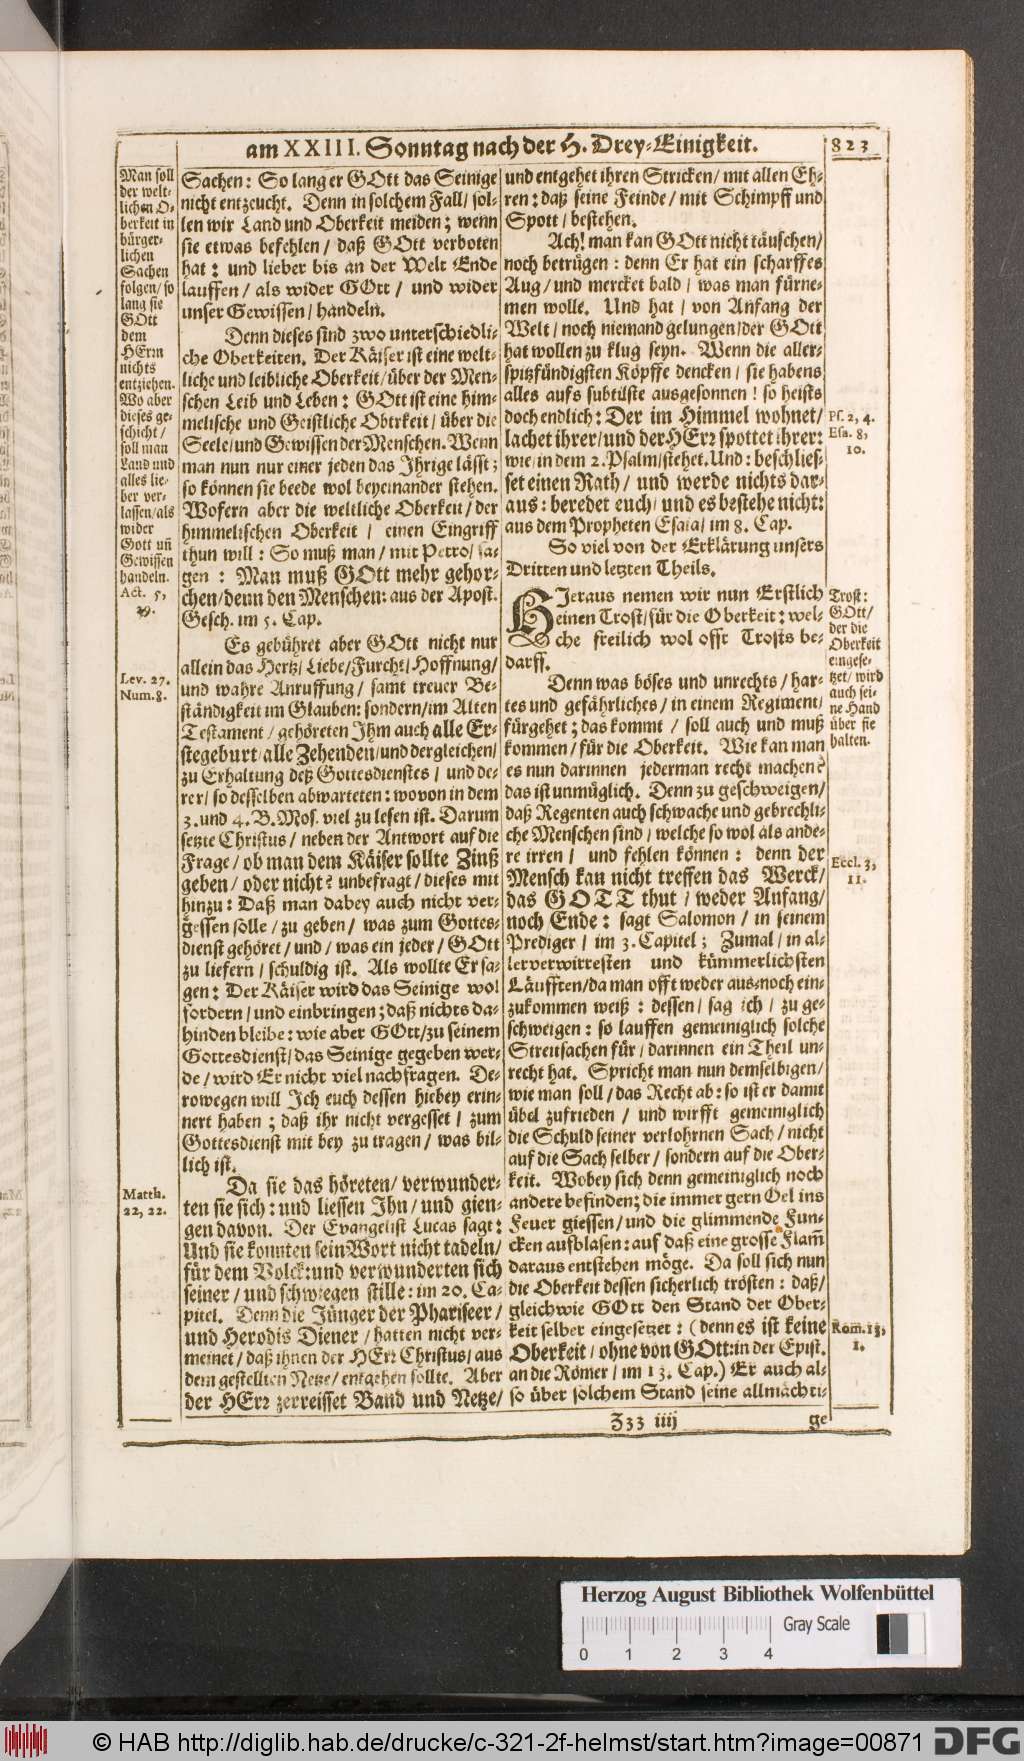 am XXIII. Sonntag nach der H. Drey-Einigkeit.
823
Man soll
der welt-
lichen O-
berkeit in
bürger-
lichen
Sachen
folgen/ so
lang sie
GOtt
dem
HErrn
nichts
entziehen.
Wo aber
dieses ge-
schicht/
soll man
Land und
alles lie-
ber ver-
lassen/als
wider
Gott uñ
Gewissen
handeln.
Act. 5,
29.
Lev. 27.
Num. 8.
Matth.
22, 22.
Sachen: So lang er GOtt das Seinige
nicht entzeucht. Denn in solchem Fall/ sol-
len wir Land und Oberkeit meiden; wenn
sie etwas befehlen/ daß GOtt verboten
hat: und lieber bis an der Welt Ende
lauffen/ als wider GOtt/ und wider
unser Gewissen/ handeln.
Denn dieses sind zwo unterschiedli-
che Oberkeiten. Der Käiser ist eine welt-
liche und leibliche Oberkeit/über der Men-
schen Leib und Leben: GOtt ist eine him-
melische und Geistliche Obtrkeit/ über die
Seele/und Gewissen der Menschen. Wenn
man nun nur einer jeden das Ihrige lässt;
so können sie beede wol beyeinander stehen.
Wofern aber die weltliche Oberkeit/ der
himmelischen Oberkeit/ einen Eingriff
thun will: So muß man/ mit Petro/ sa-
gen: Man muß GOtt mehr gehor-
chen/denn den Menschen: aus der Apost.
Gesch. im 5. Cap.
Es gebühret aber GOtt nicht nur
allein das Hertz/ Liebe/Furcht/ Hoffnung/
und wahre Anruffung/ samt treuer Be-
ständigkeit im Glauben: sondern/im Alten
Testament/ gehöreten Ihm auch alle Er-
stegeburt/alle Zehenden/und dergleichen/
zu Erhaltung deß Gottesdienstes/ und de-
rer/ so desselben abwarteten: wovon in dem
3. und 4. B. Mos. viel zu lesen ist. Darum
setzte Christus/ neben der Antwort auf die
Frage/ ob man dem Käiser sollte Zinß
geben/ oder nicht? unbefragt/ dieses mit
hinzu: Daß man dabey auch nicht ver-
gessen solle/ zu geben/ was zum Gottes-
dienst gehöret/ und/ was ein jeder/ GOtt
zu liefern/ schuldig ist. Als wollte Er sa-
gen: Der Käiser wird das Seinige wol
fordern/ und einbringen; daß nichts da-
hinden bleibe: wie aber GOtt/zu seinem
Gottesdienst/ das Seinige gegeben wer-
de/ wird Er nicht viel nachfragen. De-
rowegen will Ich euch dessen hiebey erin-
nert haben; daß ihr nicht vergesset/ zum
Gottesdienst mit bey zu tragen/ was bil-
lich ist.
Da sie das höreten/ verwunder-
ten sie sich: und liessen Ihn/ und gien-
gen davon. Der Evangelist Lucas sagt:
Und sie konnten sein Wort nicht tadeln/
für dem Volck: und verwunderten sich
seiner/ und schwiegen stille: im 20. Ca-
pitel. Denn die Jünger der Phariseer/
und Herodis Diener/ hatten nicht ver-
meinet/ daß ihnen der HErr Christus/ aus
dem gestellten Netze/ entgehen sollte. Aber
der HErr zerreisset Band und Netze/
und entgehet ihren Stricken/ mit allen Eh-
ren: daß seine Feinde/ mit Schimpff und
Spott/ bestehen.
Ach! man kan GOtt nicht täuschen/
noch betrügen: denn Er hat ein scharffes
Aug/ und mercket bald/ was man fürne-
men wolle. Und hat/ von Anfang der
Welt/ noch niemand gelungen/der GOtt
hat wollen zu klug seyn. Wenn die aller-
spitzfündigsten Köpffe dencken/ sie habens
alles aufs subtilste ausgesonnen! so heists
doch endlich: Der im Himmel wohnet/
lachet ihrer/und der HErr spottet ihrer:
wie/in dem 2. Psalm/stehet. Und: beschlies-
set einen Rath/ und werde nichts dar-
aus: beredet euch/ und es bestehe nicht:
aus dem Propheten Esaia/ im 8. Cap.
So viel von der Erklärung unsers
Dritten und letzten Theils.
HIeraus nemen wir nun Erstlich
einen Trost/für die Oberkeit: wel-
che freilich wol offt Trosts be-
darff.
Denn was böses und unrechts/ har-
tes und gefährliches/ in einem Regiment/
fürgehet; das kommt/ soll auch und muß
kommen/ für die Oberkeit. Wie kan man
es nun darinnen jederman recht machen?
das ist unmüglich. Denn zu geschweigen/
daß Regenten auch schwache und gebrechli-
che Menschen sind/ welche so wol als ande-
re irren/ und fehlen können: denn der
Mensch kan nicht treffen das Werck/
das GOTT thut/ weder Anfang/
noch Ende: sagt Salomon/ in seinem
Prediger/ im 3. Capitel; Zumal/ in al-
lerverwirresten und kümmerlichsten
Läufften/da man offt weder aus-noch ein-
zukommen weiß: dessen/ sag ich/ zu ge-
schweigen: so lauffen gemeiniglich solche
Streitsachen für/ darinnen ein Theil un-
recht hat. Spricht man nun demselbigen/
wie man soll/ das Recht ab: so ist er damit
übel zufrieden/ und wirfft gemeiniglich
die Schuld seiner verlohrnen Sach/ nicht
auf die Sach selber/ sondern auf die Ober-
keit. Wobey sich denn gemeiniglich noch
andere befinden; die immer gern Oel ins
Feuer giessen/ und die glimmende Fun-
cken aufblasen: auf daß eine grosse Flam̃
daraus entstehen möge. Da soll sich nun
die Oberkeit dessen sicherlich trösten: daß/
gleichwie GOtt den Stand der Ober-
keit selber eingesetzet: (denn es ist keine
Oberkeit/ ohne von GOtt: in der Epist.
an die Römer/ im 13. Cap.) Er auch al-
so über solchem Stand seine allmächti-
Ps. 2, 4.
Esa. 8,
10.
Trost:
GOtt/
der die
Oberkeit
eingese-
tzet/ wird
auch sei-
ne Hand
über sie
halten.
Eccl. 3,
11.
Rom. 13,
1.
Zzz iiij
ge
Herzog August Bibliothek Wolfenbüttel
Gray Scale
0 1 2 3 4
© HAB http://diglib.hab.de/drucke/c-321-2f-helmst/start.htm?image=00871
DFG